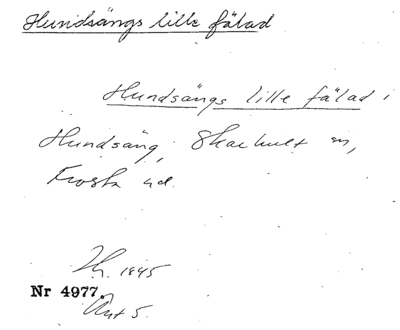 Hundsängs lille fälad
Hundsängs lille fälad i
Hundsäng, Skarhult sn,
Frosta hd.
1845
Nr 4977.
Ant 5.